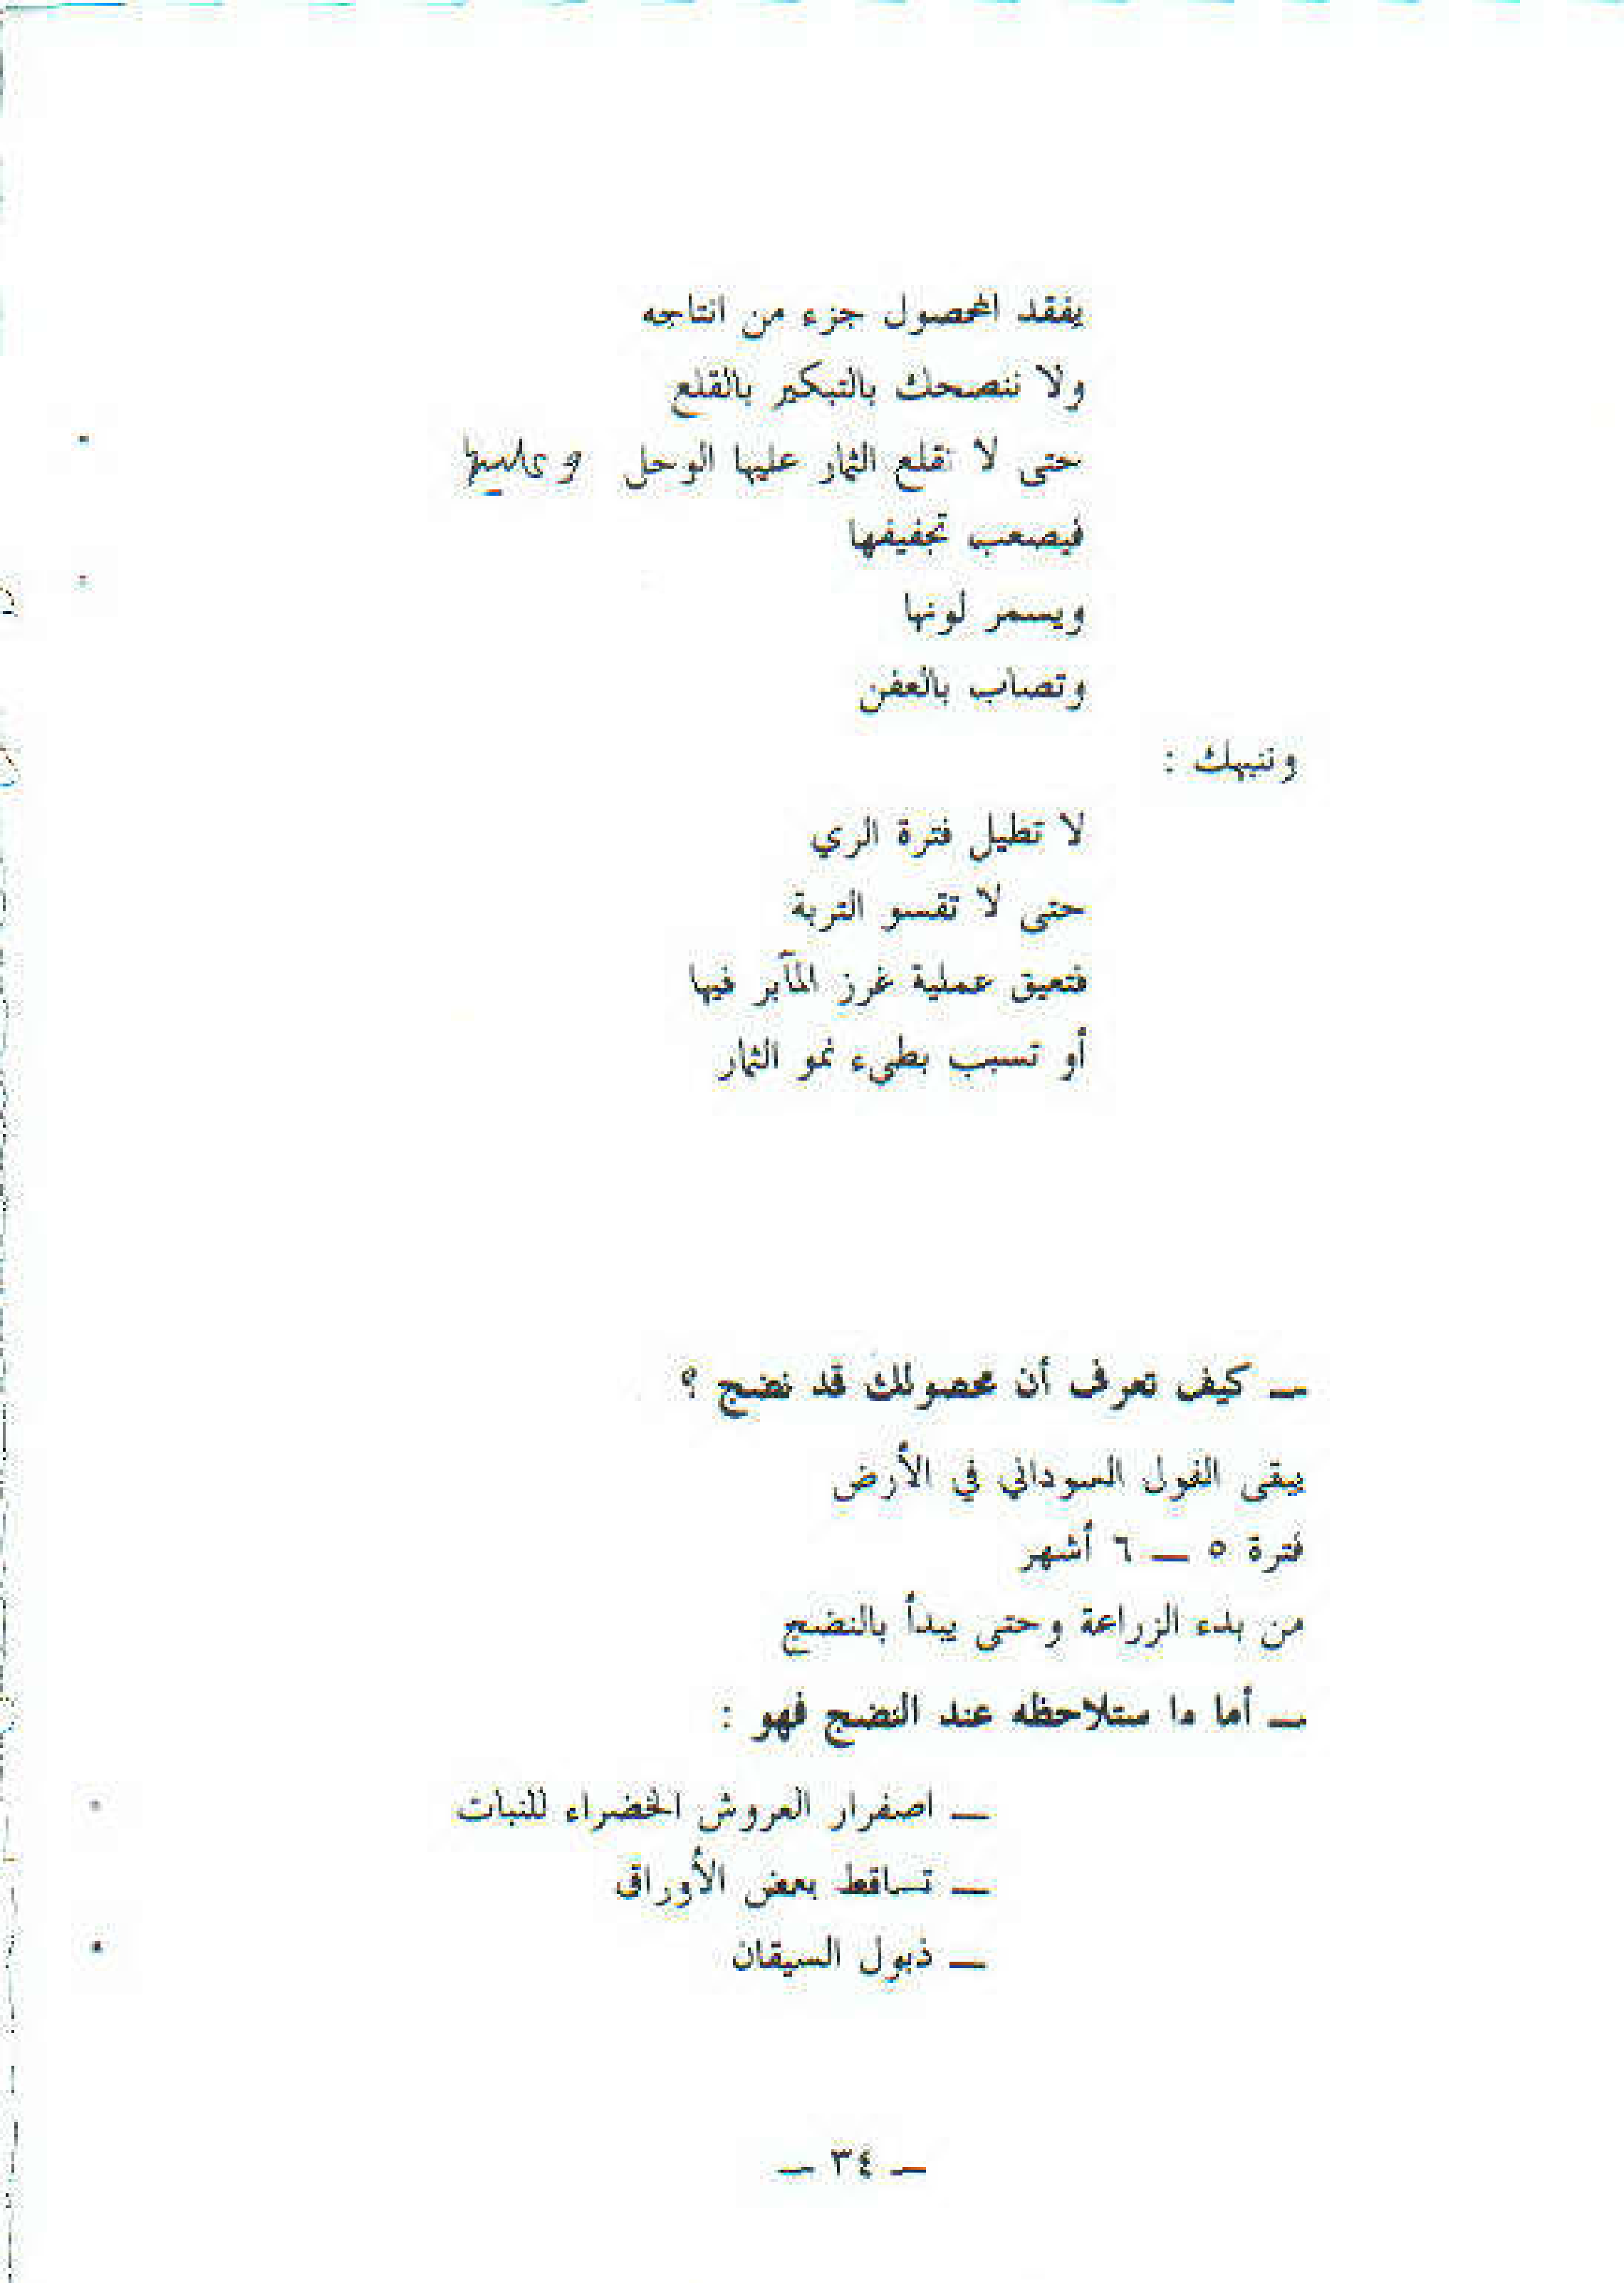 يفقد المحصول جزء من انتاجه
ولا ننصحك بالتبكير بالقلع
حتى لا تقلع الثمار عليها الوحل
فيصعب تجفيفها
ويسمر لونها
وتصاب بالعفن
وننبهك :
لا تطيل فترة الري
حتى لا تقسو التربة
فتعيق عملية غرز المآبر فيها
أو تسبب بطيء نمو الثمار
ـ كيف تعرف أن محصولك قد نضج ؟
يبقى الفول السوداني في الأرض
فترة ٥ ـ ٦ أشهر
من بدء الزراعة وحتى يبدأ بالنضج
ـ أما ما ستلاحظه عند النضج فهو :
ـ اصفرار العروش الخضراء للنبات
ـ تساقط بعض الأوراق
ـ ذبول السيقان
ـ ٣٤ ـ